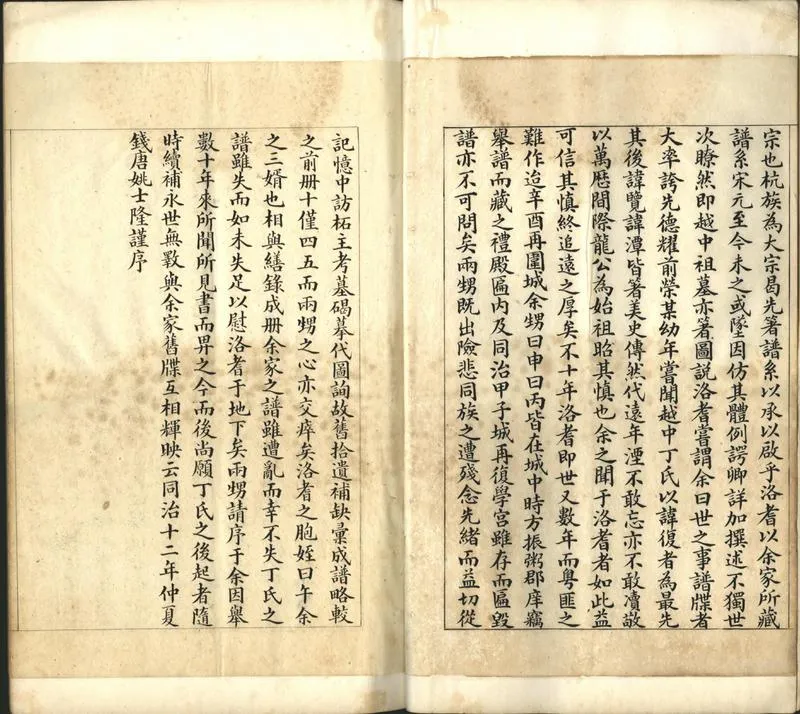 宗也杭族為大宗曷先著譜系以承以啟乎洛耆以余家所藏
譜系宋元至今未之或墜因仿其體例諤卿詳加撰述不獨世
次瞭然即越中祖墓亦著圖說洛耆嘗謂余曰世之事譜牒者
大率誇先德耀前榮某幼年嘗聞越中丁氏以諱復者為最先
其後諱覽諱潭皆著美史傳然代遠年湮不敢忘亦不敢瀆敬
以萬厯間際龍公為始祖昭其慎也余之聞于洛耆者如此益
可信其慎終追遠之厚矣不十年洛耆即世又數年而粵匪之
難作迨辛酉再圍城余甥曰申曰丙皆在城中時方振粥郡庠竊
舉譜而藏之禮殿匾內及同治甲子城再復學宮雖存而匾毀
譜亦不可問矣兩甥既出險悲同族之遭殘念先緒而益切從
記憶中訪柘主考墓碣摹代圖詢故舊拾遺補缺彙成譜略較
之前册十僅四五而兩甥之心亦交瘁矣洛耆之胞姪曰午余
之三婿也相與繕錄成册余家之譜雖遭亂而幸不失丁氏之
譜雖失而如未失足以慰洛耆于地下矣兩甥請序于余因舉
數十年來所聞所見書而畀之今而後尚願丁氏之後起者隨
時續補永世無斁與余家舊牒互相輝映云同治十二年仲夏
錢唐姚士隆謹序